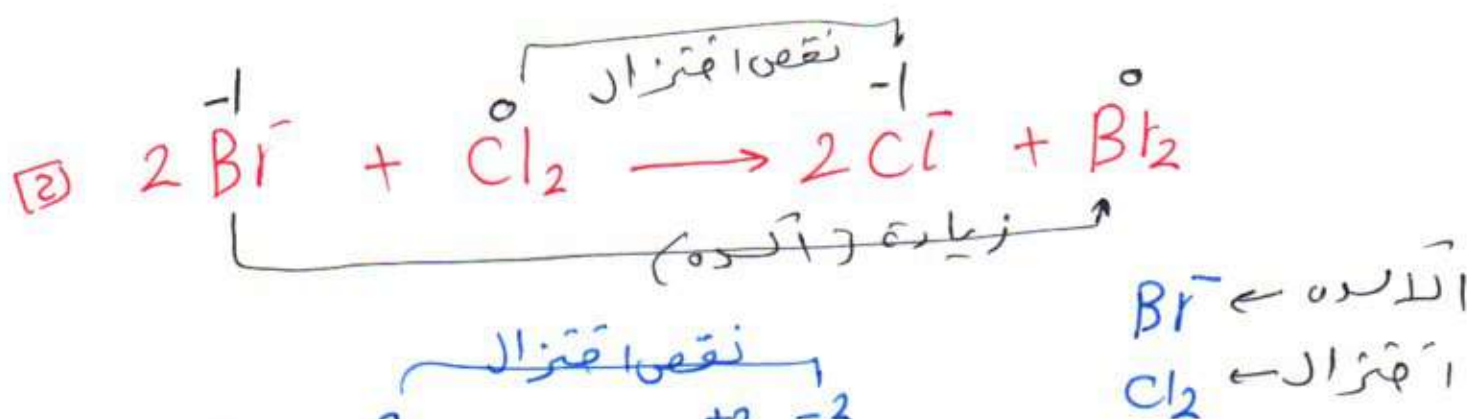 نقص اختزال
-1 0 -1 0
[2] 2Br⁻ + Cl₂ → 2Cl⁻ + Br₂
زيادة (أكسده)
الأكسده ← Br⁻
نقص اختزال
اختزال ← Cl₂